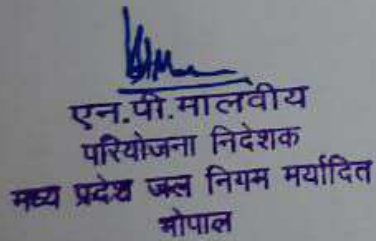 एन.पी.मालवीय
परियोजना निदेशक
मध्य प्रदेश जल निगम मर्यादित
भोपाल